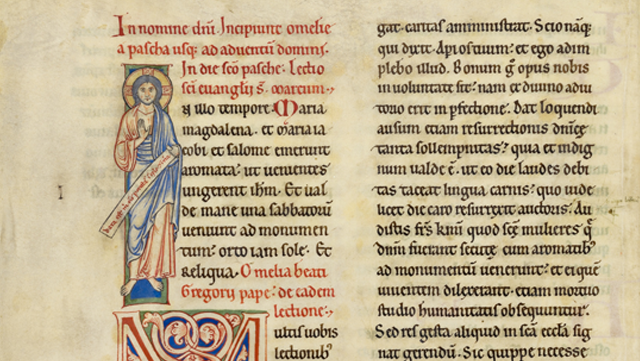 In nomine dnī. Incipiunt omelie
a pascha usq; ad aduentū domini.
In die scō pasche. Lectio
scī euanglii s. marcum.
In illo tempore. Maria
magdalena. et maria ia
cobi et salome emerunt
aromata. ut uenientes
ungerent ihm. Et ual
de mane una sabbatorū
ueniunt ad monumen
tum. orto iam sole. Et
Reliqua. Omelia beati
Gregorij pape. de eadem
lectione.
ultis uobis
lectionib;
gat. caritas amministrat. Scio nāq;
qui dixit. Api os tuum. et ego adim
plebo illud. Bonum g opus nobis
in uoluntate sit. nam ex diuino adiu
torio erit in pfectione. Dat loquendi
ausum etiam resurrectionis dnicę
tanta sollempnitas. quia et indig
num ualde ē. ut eo die laudes debi
tas taceat lingua carnis. quo uide
licet die caro resurrexit auctoris. Au
distis frs km quod scē mulieres q
dnm fuerant secutę cum aromatib;
ad monumentū uenerunt. et ei quē
uiuentem dilexerant. etiam mortuo
studio humanitatis obsequuntur.
Sed res gesta aliquid in scā ecclā sig
nat gerendū. Sic quippe necesse